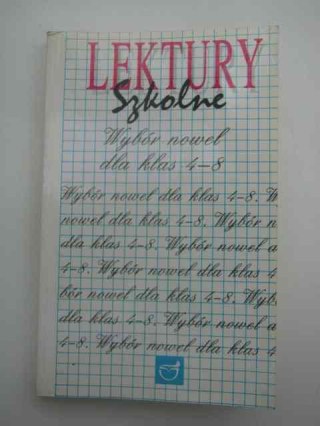 LEKTURY
Szkolne
Wybór nowel
dla klas 4-8
Wybór nowel dla klas 4-8. W
nowel dla klas 4-8. Wybór n
dla klas 4-8. Wybór nowel d
4-8. Wybór nowel dla klas 4
bór nowel dla klas 4-8. Wyb
dla klas 4-8. Wybór nowel d
4-8. Wybór nowel dla klas 4